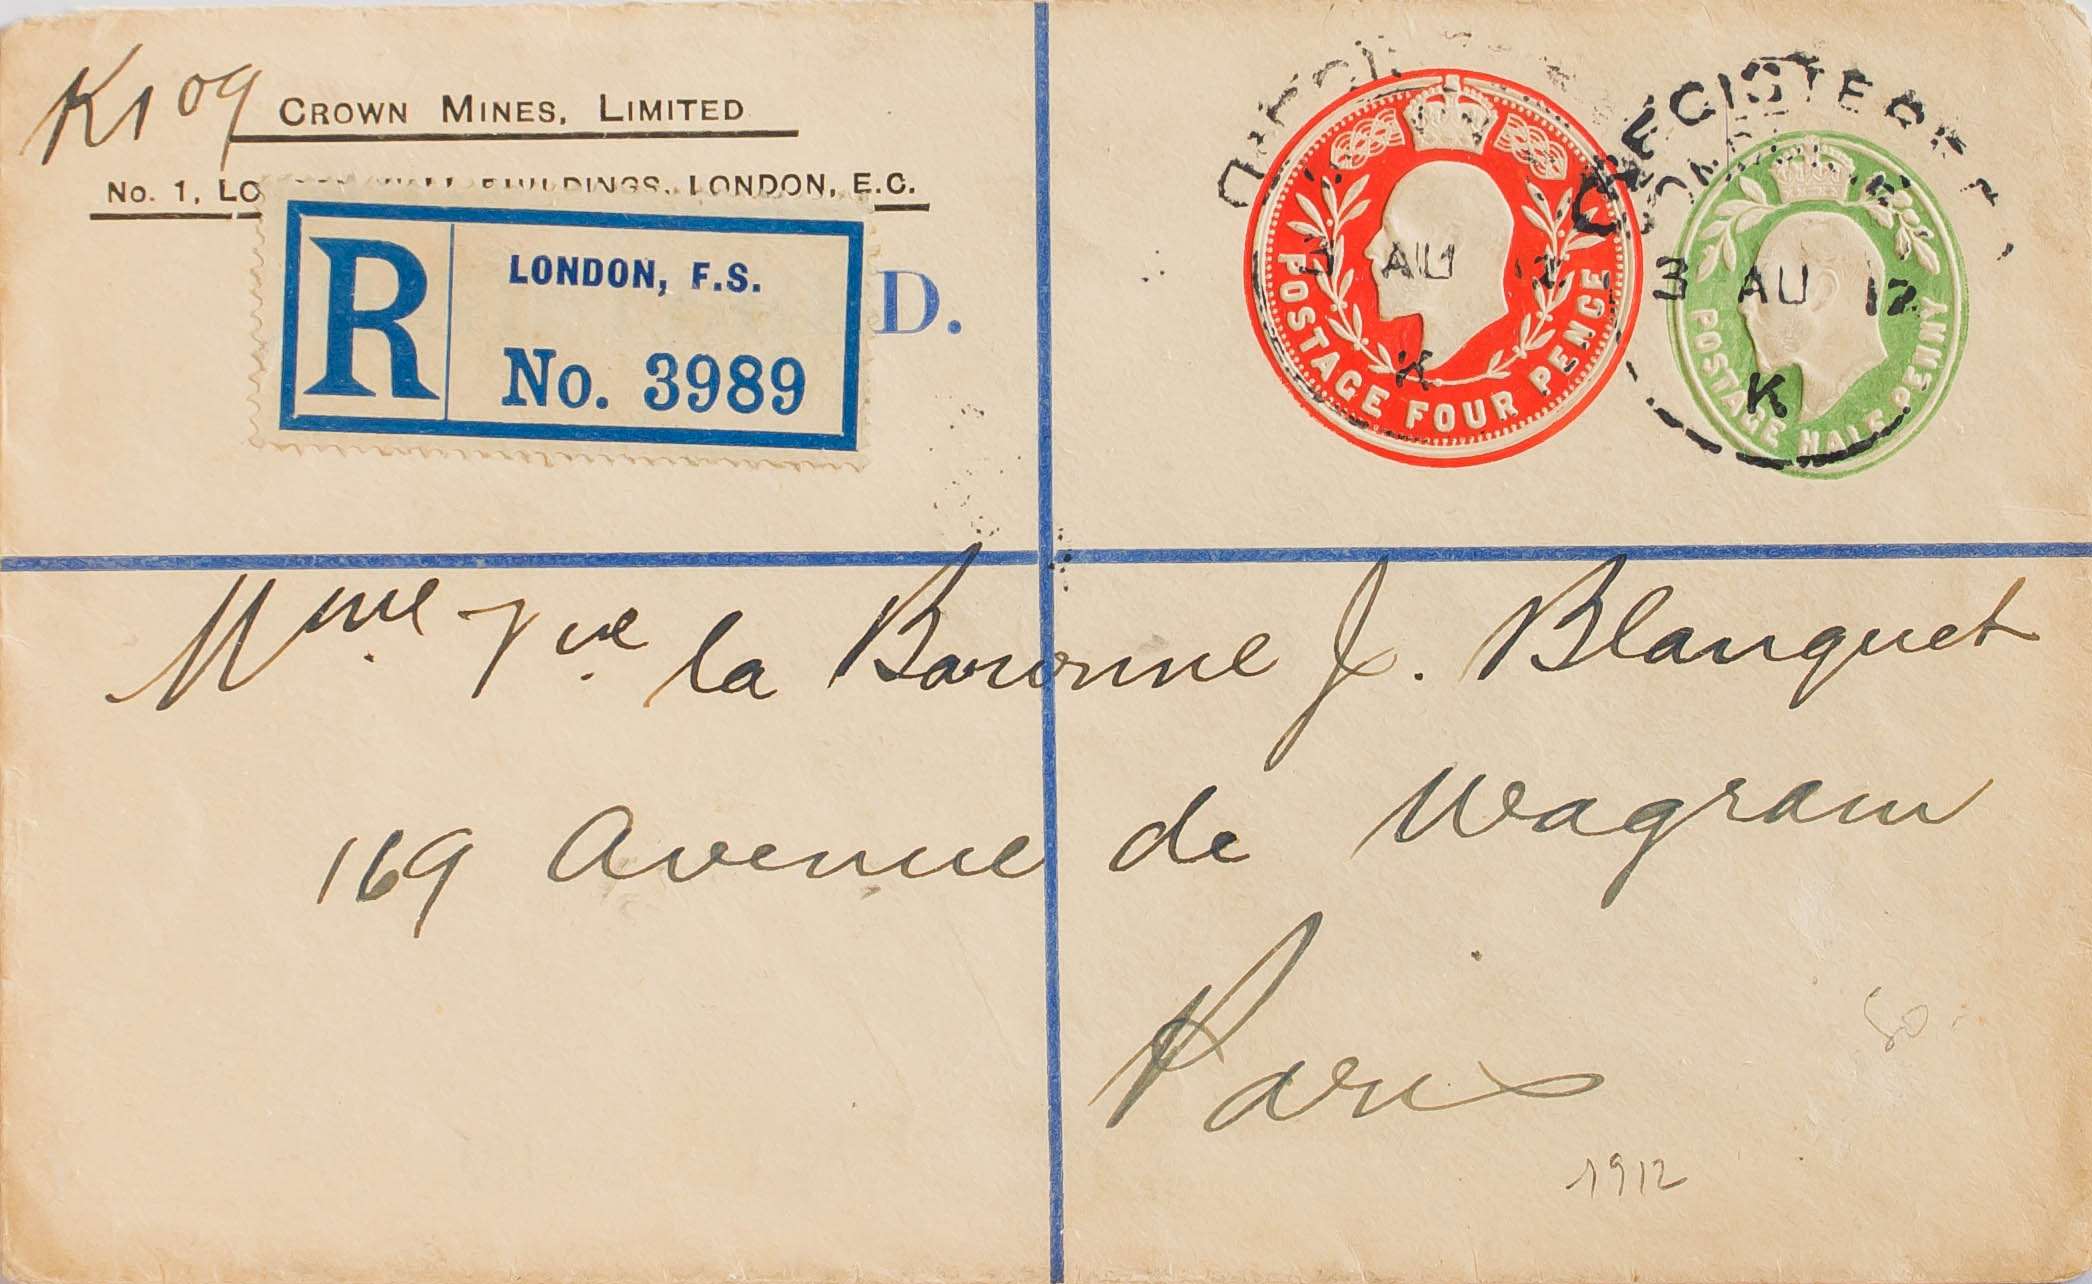 K109
CROWN MINES, LIMITED
No. 1, LO BUILDINGS, LONDON, E.C.
R
LONDON, F.S.
No. 3989
D.
POSTAGE FOUR PENCE
3 AU 12
K
REGISTERED
3 AU 12
K
POSTAGE HALF PENNY
Mme. Vve. la Baronne J. Blanquet
169 Avenue de Wagram
Paris
80
1912